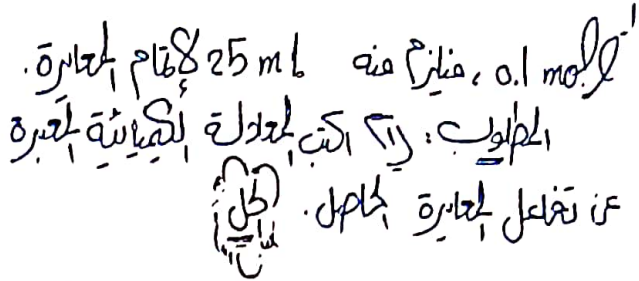 0.1 mol.l⁻¹ ، فيلزم منه 25 ml لإتمام المعايرة.
المطلوب: 1) اكتب المعادلة الكيميائية المعبرة
عن تفاعل المعايرة الحاصل.
الحل